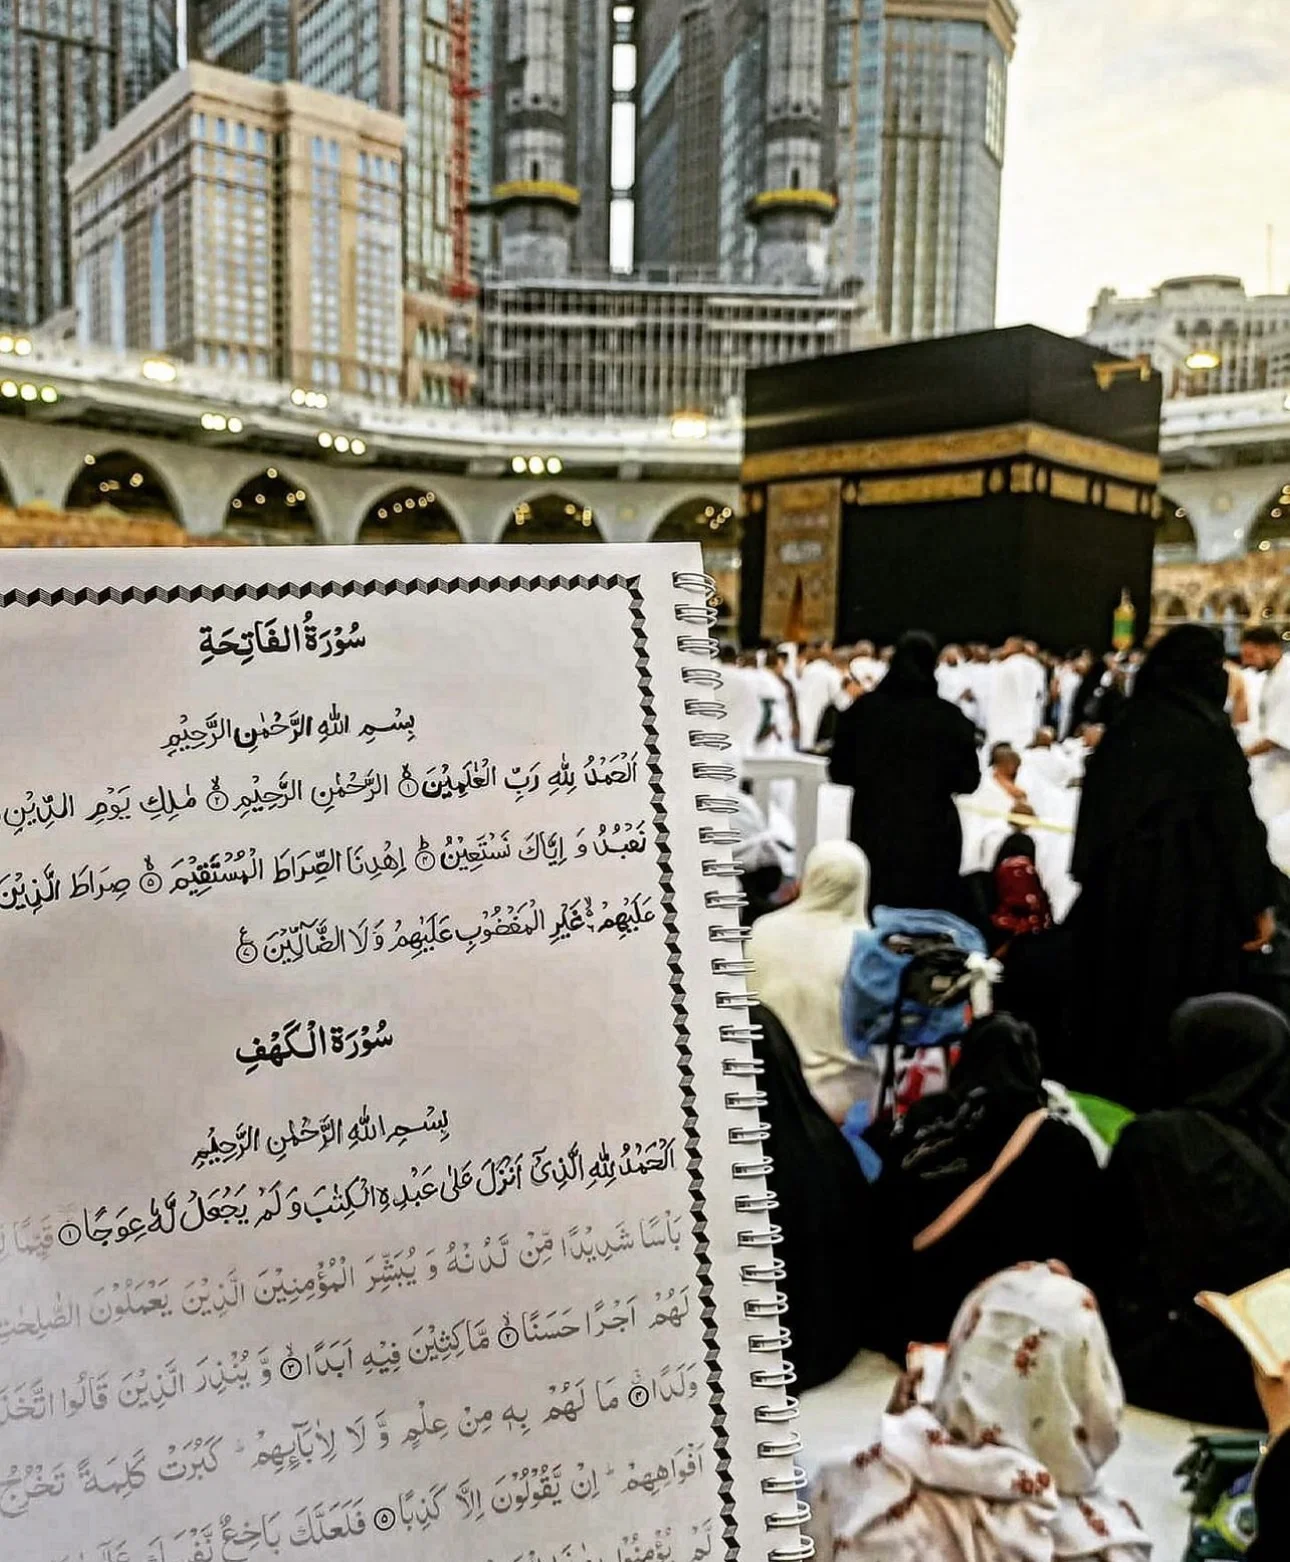 سُوْرَةُ الفَاتِحَةِ
بِسْمِ اللّٰهِ الرَّحْمٰنِ الرَّحِيْمِ
اَلْحَمْدُ لِلّٰهِ رَبِّ الْعٰلَمِيْنَ ۙ﴿۱﴾ الرَّحْمٰنِ الرَّحِيْمِ ۙ﴿۲﴾ مٰلِكِ يَوْمِ الدِّيْنِ
نَعْبُدُ وَ اِيَّاكَ نَسْتَعِيْنُ ؕ﴿۴﴾ اِهْدِنَا الصِّرَاطَ الْمُسْتَقِيْمَ ۙ﴿۵﴾ صِرَاطَ الَّذِيْنَ
عَلَيْهِمْ ۙ۬ غَيْرِ الْمَغْضُوْبِ عَلَيْهِمْ وَ لَا الضَّآلِّيْنَ ﴿۷﴾
سُوْرَةُ الْكَهْفِ
بِسْمِ اللّٰهِ الرَّحْمٰنِ الرَّحِيْمِ
اَلْحَمْدُ لِلّٰهِ الَّذِيْۤ اَنْزَلَ عَلٰى عَبْدِهِ الْكِتٰبَ وَ لَمْ يَجْعَلْ لَّهٗ عِوَجًا ﴿۱﴾ قَيِّمًا
بَاْسًا شَدِيْدًا مِّنْ لَّدُنْهُ وَ يُبَشِّرَ الْمُؤْمِنِيْنَ الَّذِيْنَ يَعْمَلُوْنَ الصّٰلِحٰتِ
لَهُمْ اَجْرًا حَسَنًا ۙ﴿۲﴾ مَّاكِثِيْنَ فِيْهِ اَبَدًا ۙ﴿۳﴾ وَّ يُنْذِرَ الَّذِيْنَ قَالُوا
وَلَدًا ﴿۴﴾ مَا لَهُمْ بِهٖ مِنْ عِلْمٍ وَّ لَا لِاٰبَآىِٕهِمْ ؕ كَبُرَتْ كَلِمَةً تَخْرُجُ
اَفْوَاهِهِمْ ؕ اِنْ يَّقُوْلُوْنَ اِلَّا كَذِبًا ﴿۵﴾ فَلَعَلَّكَ بَاخِعٌ
لَّمْ يُؤْمِنُوْا